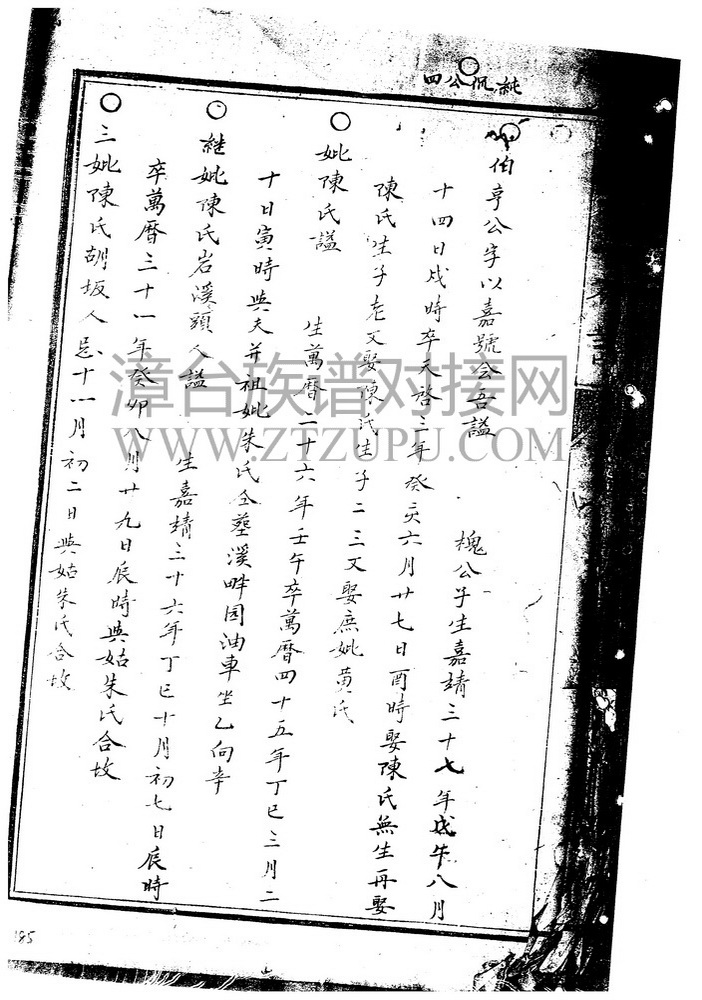 純侃公四
伯亨公字以嘉號会吾謚 槐公子生嘉靖三十七年戊午八月
十四日戌時卒天啓三年癸亥六月廿七日酉時娶陳氏無生再娶
陳氏生子 又娶陳氏生子二三又娶庶妣黃氏
妣陳氏謚 生萬曆二十六年壬午卒萬曆四十五年丁巳三月二
十日寅時與夫并祖妣朱氏仝塟溪畔园油車坐乙向辛
継妣陳氏岩溪頭人謚 生嘉靖三十六年丁巳十月初七日辰時
卒萬曆三十一年癸卯八月廿九日辰時與姑朱氏合坟
三妣陳氏胡坂人忌十一月初二日與姑朱氏合坟
漳台族谱对接网
WWW.ZTZUPU.COM
185